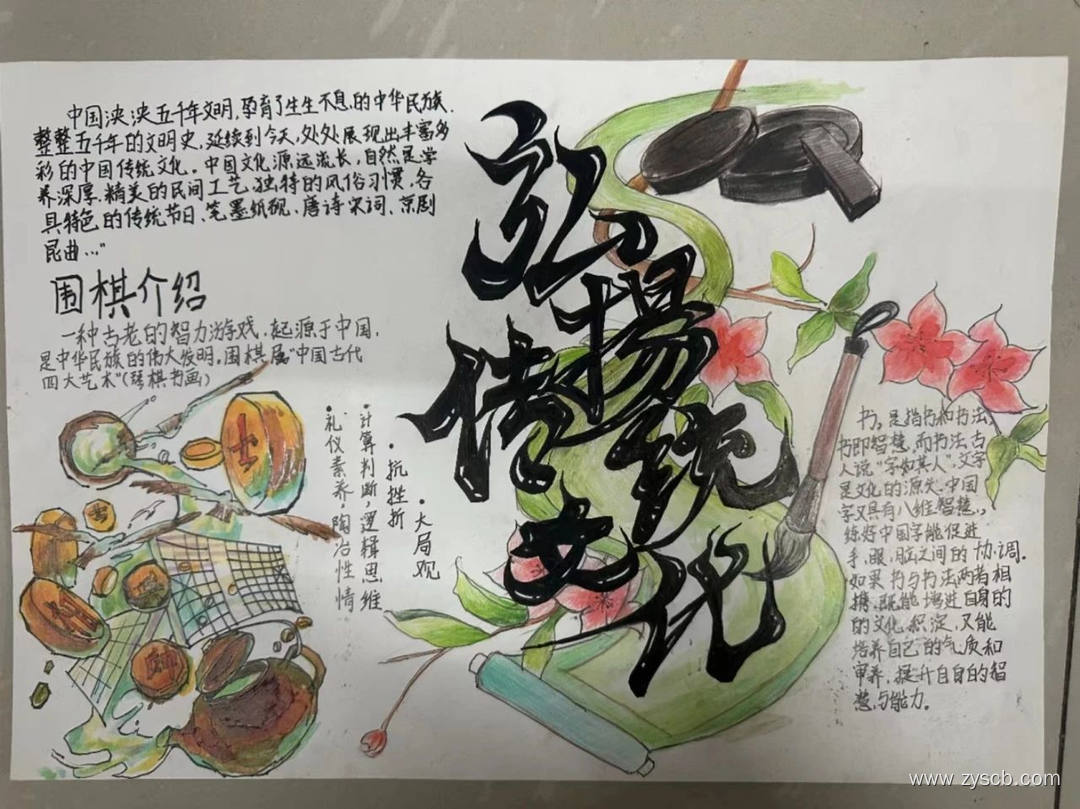 中国泱泱五千年文明,孕育了生生不息的中华民族.
整整五千年的文明史,延续到今天,处处展现出丰富多
彩的中国传统文化。中国文化源远流长,自然是学
养深厚.精美的民间工艺.独特的风俗习惯、各
具特色的传统节日、笔墨纸砚、唐诗宋词、京剧
昆曲..."
围棋介绍
一种古老的智力游戏.起源于中国.
是中华民族的伟大发明。围棋属"中国古代
四大艺术"(琴棋书画)
弘揚
传统
文化
•大局观
•抗挫折
•计算判断,逻辑思维
•礼仪素养,陶冶性情
书,是指书和书法,
书即智慧,而书法,古
人说"字如其人".文字
是文化的源头.中国
字又具有八维智慧,,
练好中国字能促进
手,眼,脑之间的协调.
如果书与书法两者相
携.既能增进自身的
的文化积淀,又能
培养自己的气质和
审养,提升自身的智
慧与能力。
www.zyscb.com